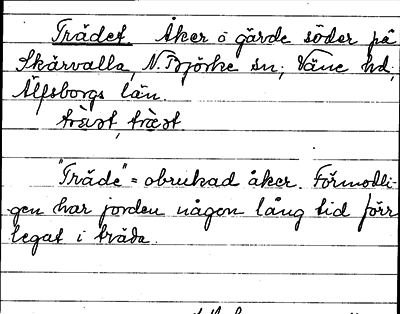 Trädet. Åker o gärde söder på
Skärvalla, N. Björke sn, Väne hd,
Älfsborgs län.
"Träde" = obrukad åker. Förmodli-
gen har jorden någon lång tid förr
legat i träda.